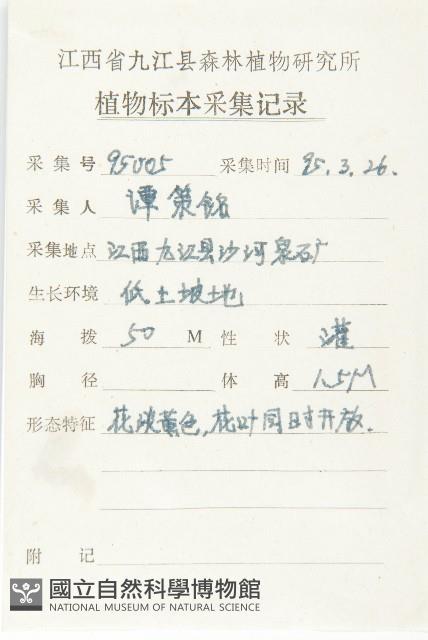 江西省九江县森林植物研究所
植物标本采集记录
采集号 95005 采集时间 95.3.26.
采集人 谭策铭
采集地点 江西九江县沙河泉石厂
生长环境 低土坡地
海拨 50 M 性状 灌
胸径 体高 1.5M
形态特征 花淡黄色,花叶同时开放.
附记
國立自然科學博物館
NATIONAL MUSEUM OF NATURAL SCIENCE